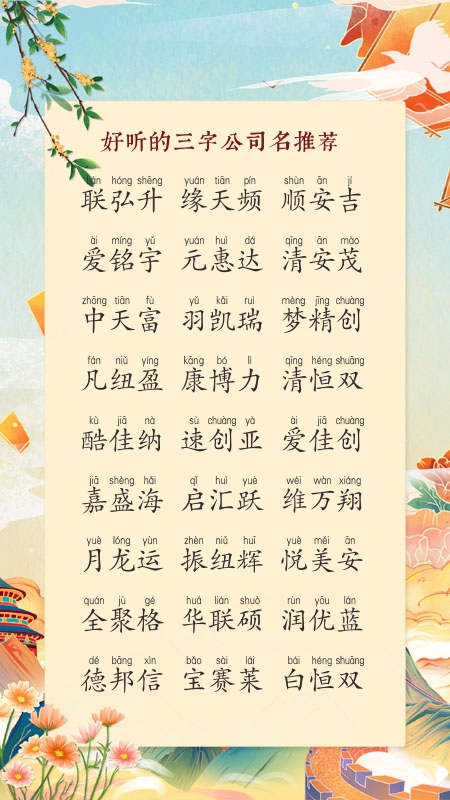 好听的三字公司名推荐
lián hóng shēng yuán tiān pín shùn ān jí
联弘升 缘天频 顺安吉
ài míng yǔ yuán huì dá qīng ān mào
爱铭宇 元惠达 清安茂
zhōng tiān fù yǔ kǎi ruì mèng jīng chuàng
中天富 羽凯瑞 梦精创
fán niǔ yíng kāng bó lì qīng héng shuāng
凡纽盈 康博力 清恒双
kù jiā nà sù chuàng yà ài jiā chuàng
酷佳纳 速创亚 爱佳创
jiā shèng hǎi qǐ huì yuè wéi wàn xiáng
嘉盛海 启汇跃 维万翔
yuè lóng yùn zhèn niǔ huī yuè měi ān
月龙运 振纽辉 悦美安
quán jù gé huá lián shuò rùn yōu lán
全聚格 华联硕 润优蓝
dé bāng xìn bǎo sài lái bái héng shuāng
德邦信 宝赛莱 白恒双